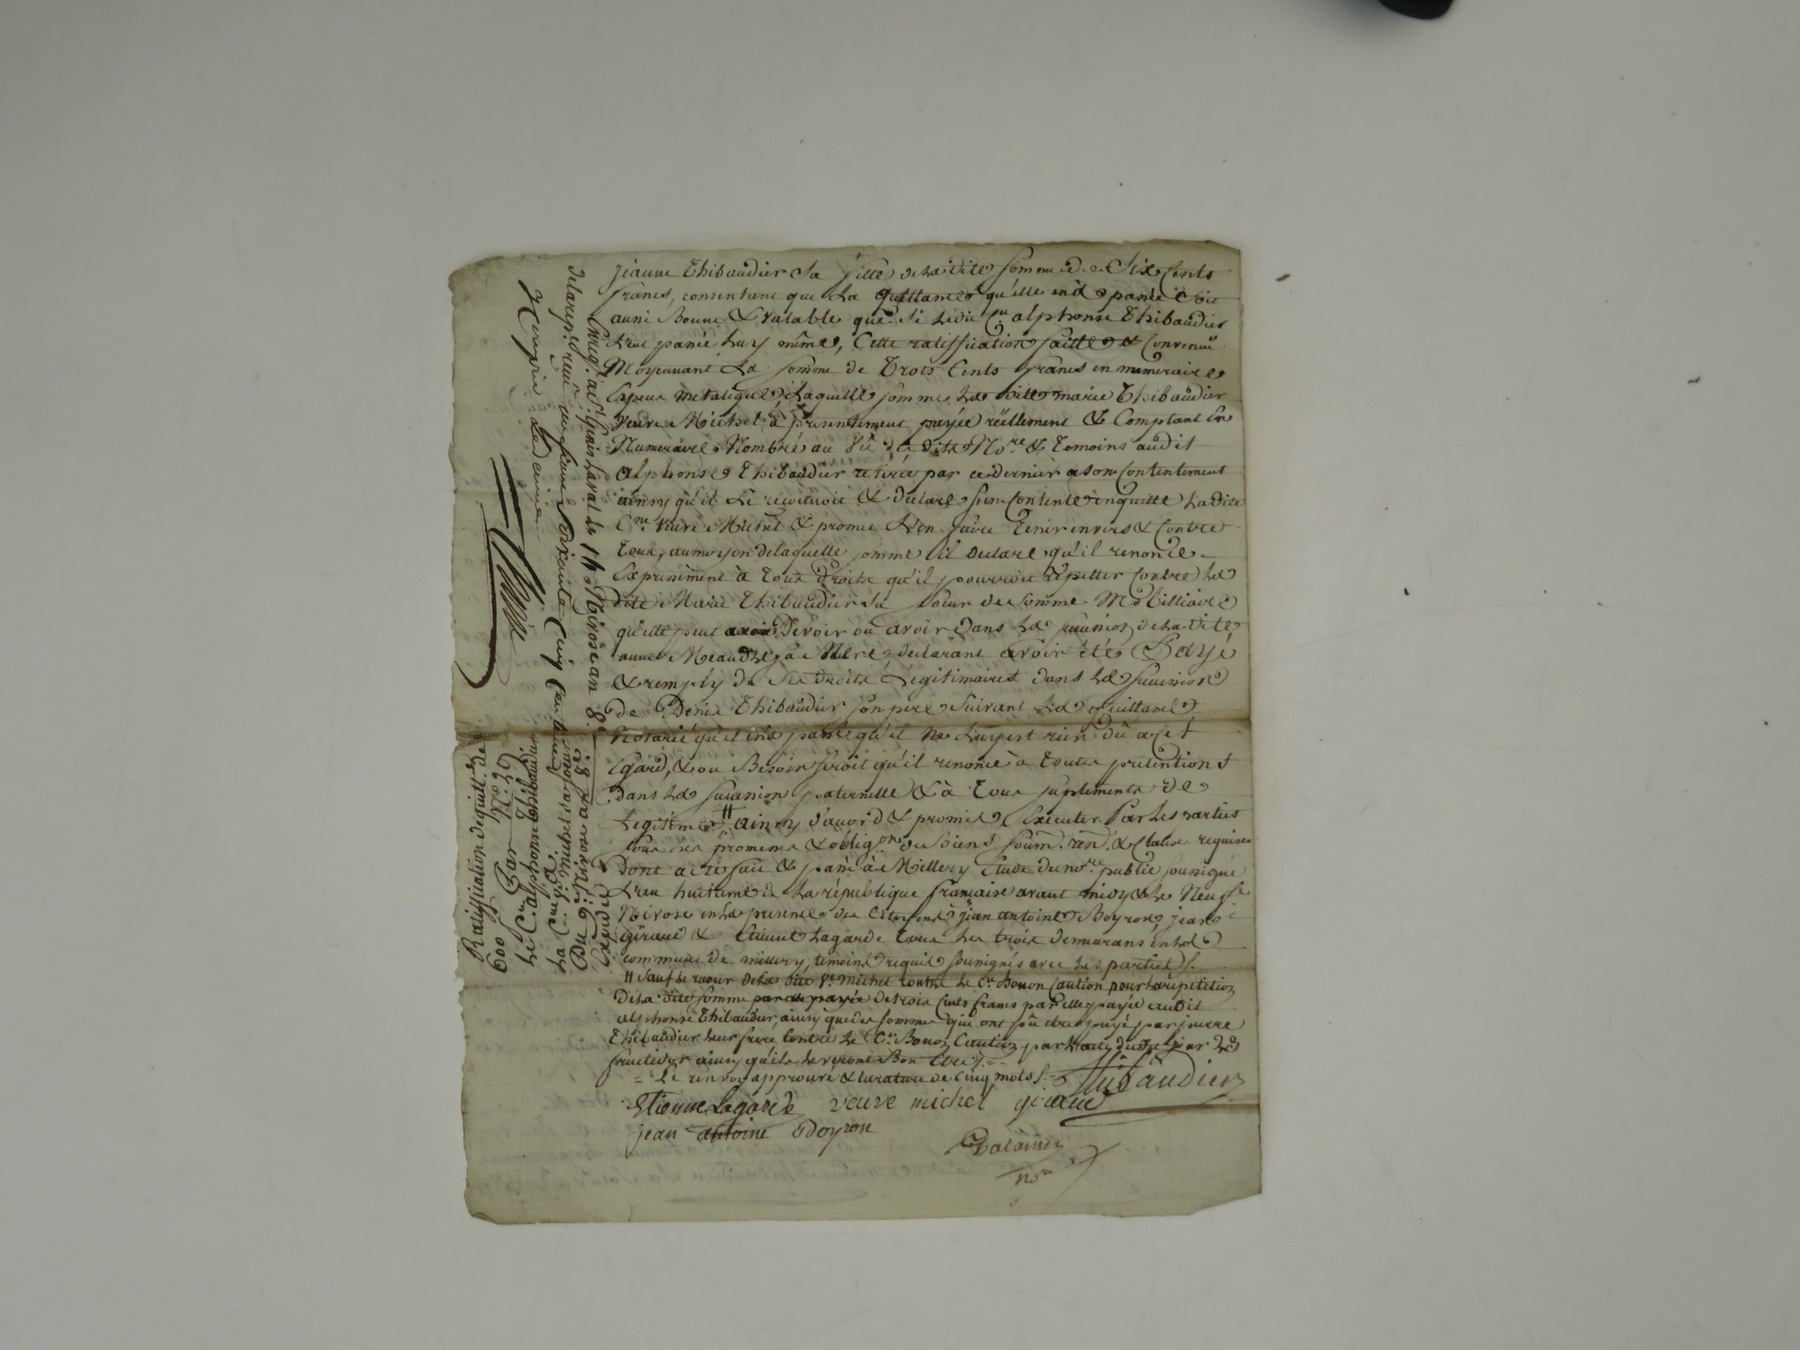 jeanne Thibaudier sa fille de la dite somme de Six Cents
francs, consentant que la quittance qu'elle en a passé soit
aussi Bonne & valable que Si ledit C.en alphonse Thibaudier
passée luy même, Cette ratiffication faitte & Convenue
Moyennant La somme de Trois Cents francs en numeraire
Espece metalique, Laquelle somme La dite marie Thibaudier
veuve Michel à presentement payée réellement & Comptant en
Numeraire Nombré au Vû de dits No.re & Temoins audit
Alphonse Thibaudier retirée par ce dernier a son Contentement
ainsy qu'il Le reconnoit & declare S'en Contente en quitte La dite
C.ne veuve Michel & promet L'en faire Tenir envers & Contre
Tous, au moyen de laquelle somme il declare qu'il renonce
Expressement à Tous droits qu'il pourroit repetter Contre La
dite Marie Thibaudier sa Soeur de Somme Mobilliaire
qu'elle peut Devoir ou avoir Dans La succession de la dite
declarant avoir été Payé
& remply de Ses droits Légitimaires dans La succession
de Denis Thibaudier son pere Suivant La quittance
Notarié qu'il en a passé qu'il ne Luy est rien Dû a cet
Egard, & ou Besoin seroit qu'il renonce à Toutes pretentions
Dans La succession paternelle & à Tous suplements de
Legitime # ainsy d'accord & promis Executer Par Les parties
sous Les promesses & oblig.ons de Biens soum. ren. & Clause requise
Dont acte fait & passé à Millery Etude du no.re public soussigné
L'an huitieme de La république française avant midy & Le Neuf
Nivose en La presence des Citoyens jean antoine Boyron, jean
Giraud & Etienne Lagarde Tous Les trois demeurans en La
commune de millery, temoins requis soussignés avec Les parties.
# Sauf Le recour de La dite V.e Michel Contre Le C.en Bonon Caution pour La répetition
De La dite somme de trois Cents francs par elle payée audit
Alphonse Thibaudier, ainsy que des sommes qui ont pû être payé par pierre
Thibaudier Leur frere Contre Le C.en Bonon Caution
fructidor ainsy qu'ils verront Bon Etre
= Le renvoy approuvé & La rature de Cinq mots
Thibaudier
Etienne Lagarde veuve michel giraud
jean antoine Boyron
no.re
Ratiffication de quitt. de
600 ff. Par N.o 29
Le C.en alphonse Thibaudier
à
La C.ne V.e Michel sa soeur
Du 9.e Nivose an 8.e
Expedié
Enreg. a S.t Genis Laval le 14 Nivose an 8.